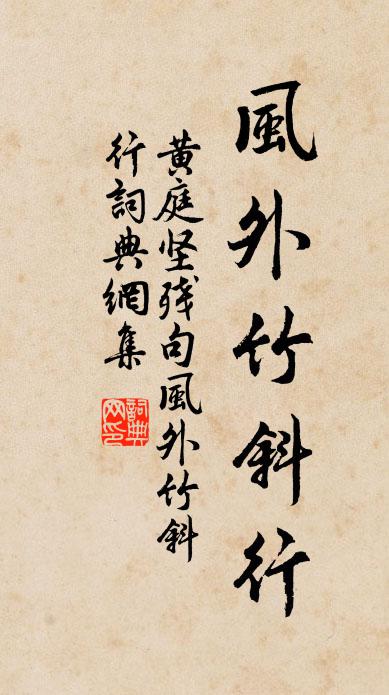 風外竹斜行
黄庭坚残句風外竹斜
行詞典網集
詞典
网印